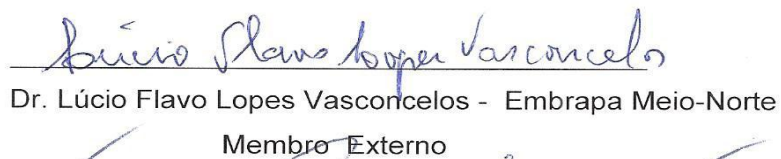 Lúcio Flavo Lopes Vasconcelos
Dr. Lúcio Flavo Lopes Vasconcelos - Embrapa Meio-Norte
Membro Externo